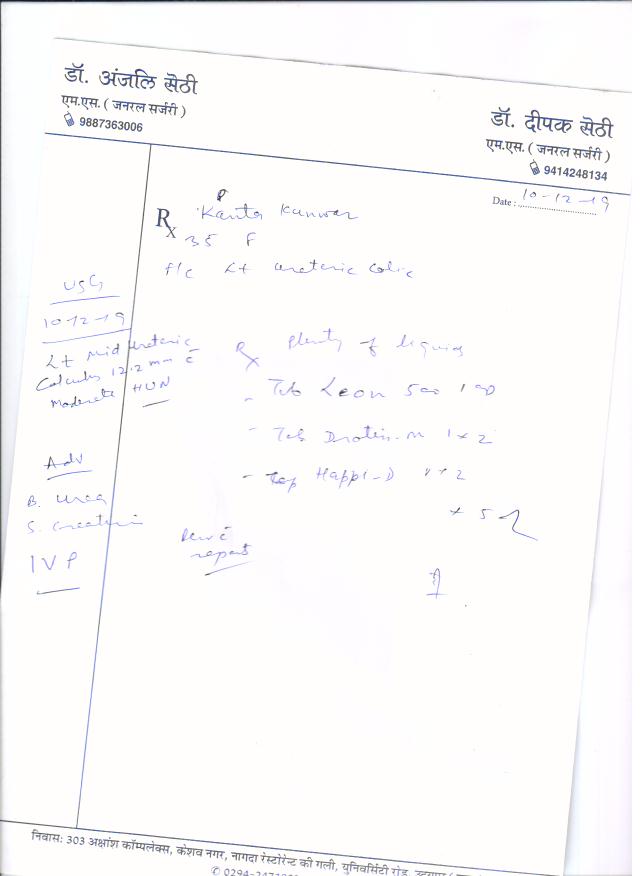 डॉ. अंजलि सेठी
एम.एस. ( जनरल सर्जरी )
9887363006
डॉ. दीपक सेठी
एम.एस. ( जनरल सर्जरी )
9414248134
Date : 10-12-19
Rx Kanta Kanwar
35 F
Lt ureteric colic
USG
10-12-19
Lt mid ureteric
Calculus 12.2 mm c̄
moderate HUN
Rx Plenty of liquids
- Tab Leon 500 1 OD
- Tab Drotin-M 1 x 2
- Cap Happi-D 1 x 2
x 5
Adv
B. Urea
S. Creatinin
IVP
c̄
report
निवास: 303 अक्षांश कॉम्पलेक्स, केशव नगर, नागदा रेस्टोरेन्ट की गली, युनिवर्सिटी रोड,